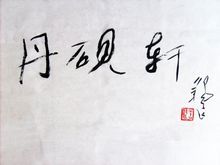 丹砚轩